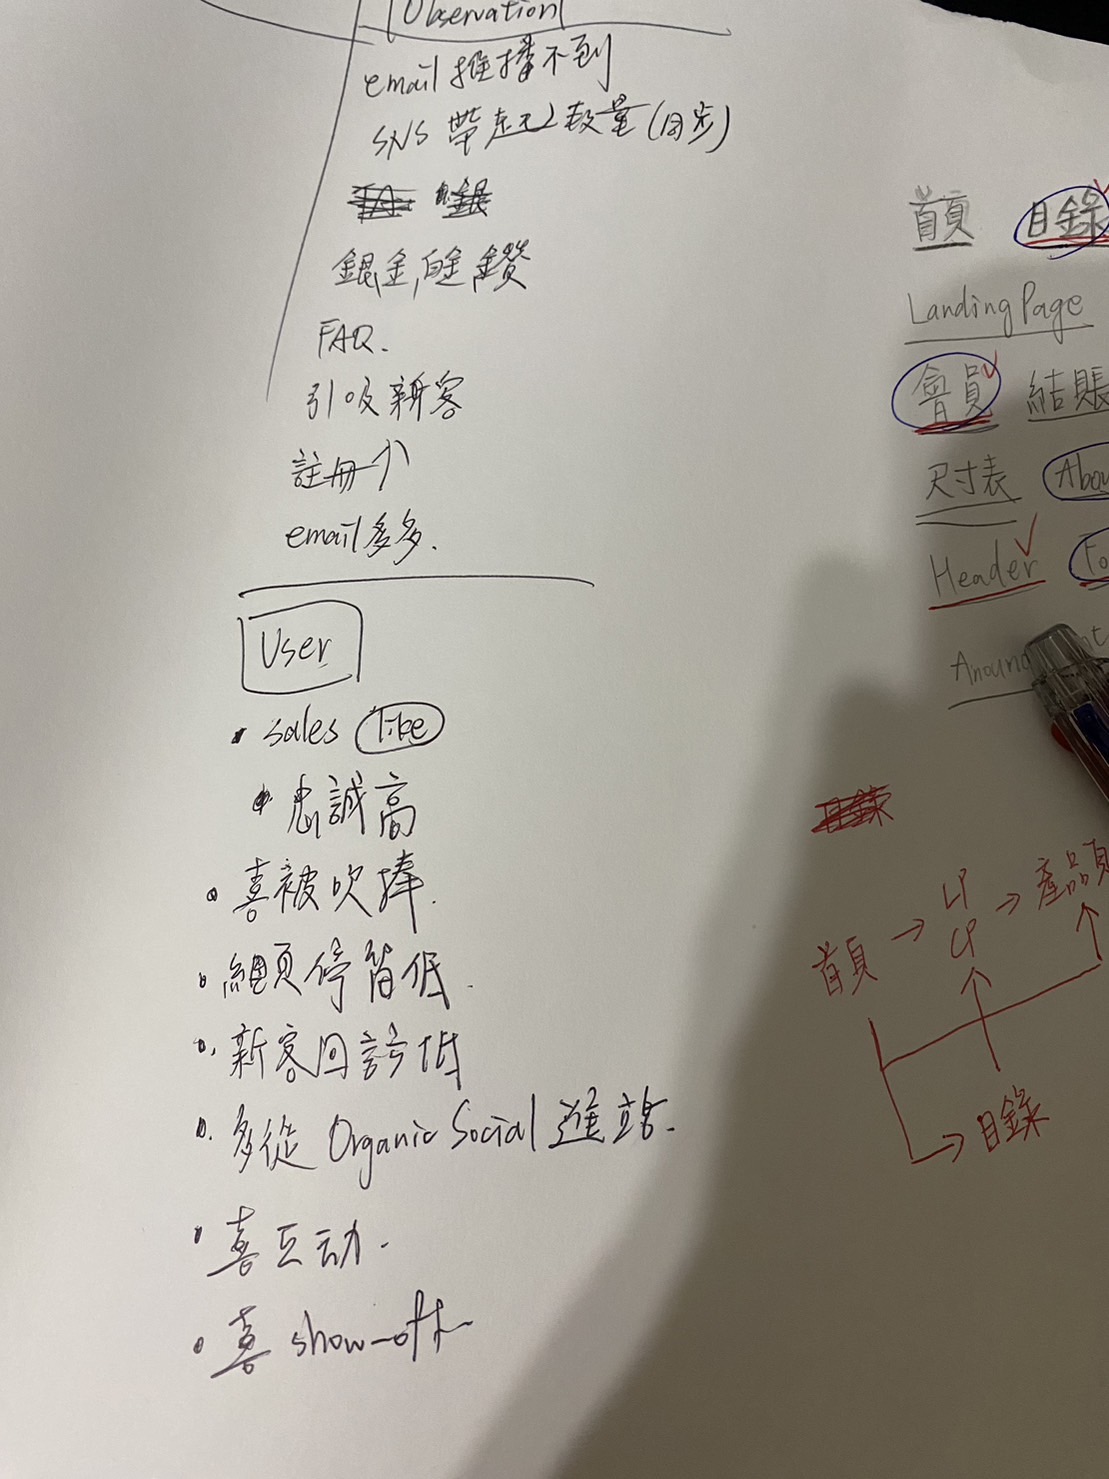 Observation
email 推播不到
SNS 帶起聲量(同步)
銀,金,白金,鑽
FAQ.
引吸新客
註冊个
email多多.
User
sales like
忠誠高
喜被吹捧.
細頁停留低.
新客回訪低
多從 Organic Social 進站.
喜互动.
喜 show-off
首頁 目錄
Landing Page
會員 結賬
尺寸表
Header
首頁 → LP CP → 產品頁
→ 目錄